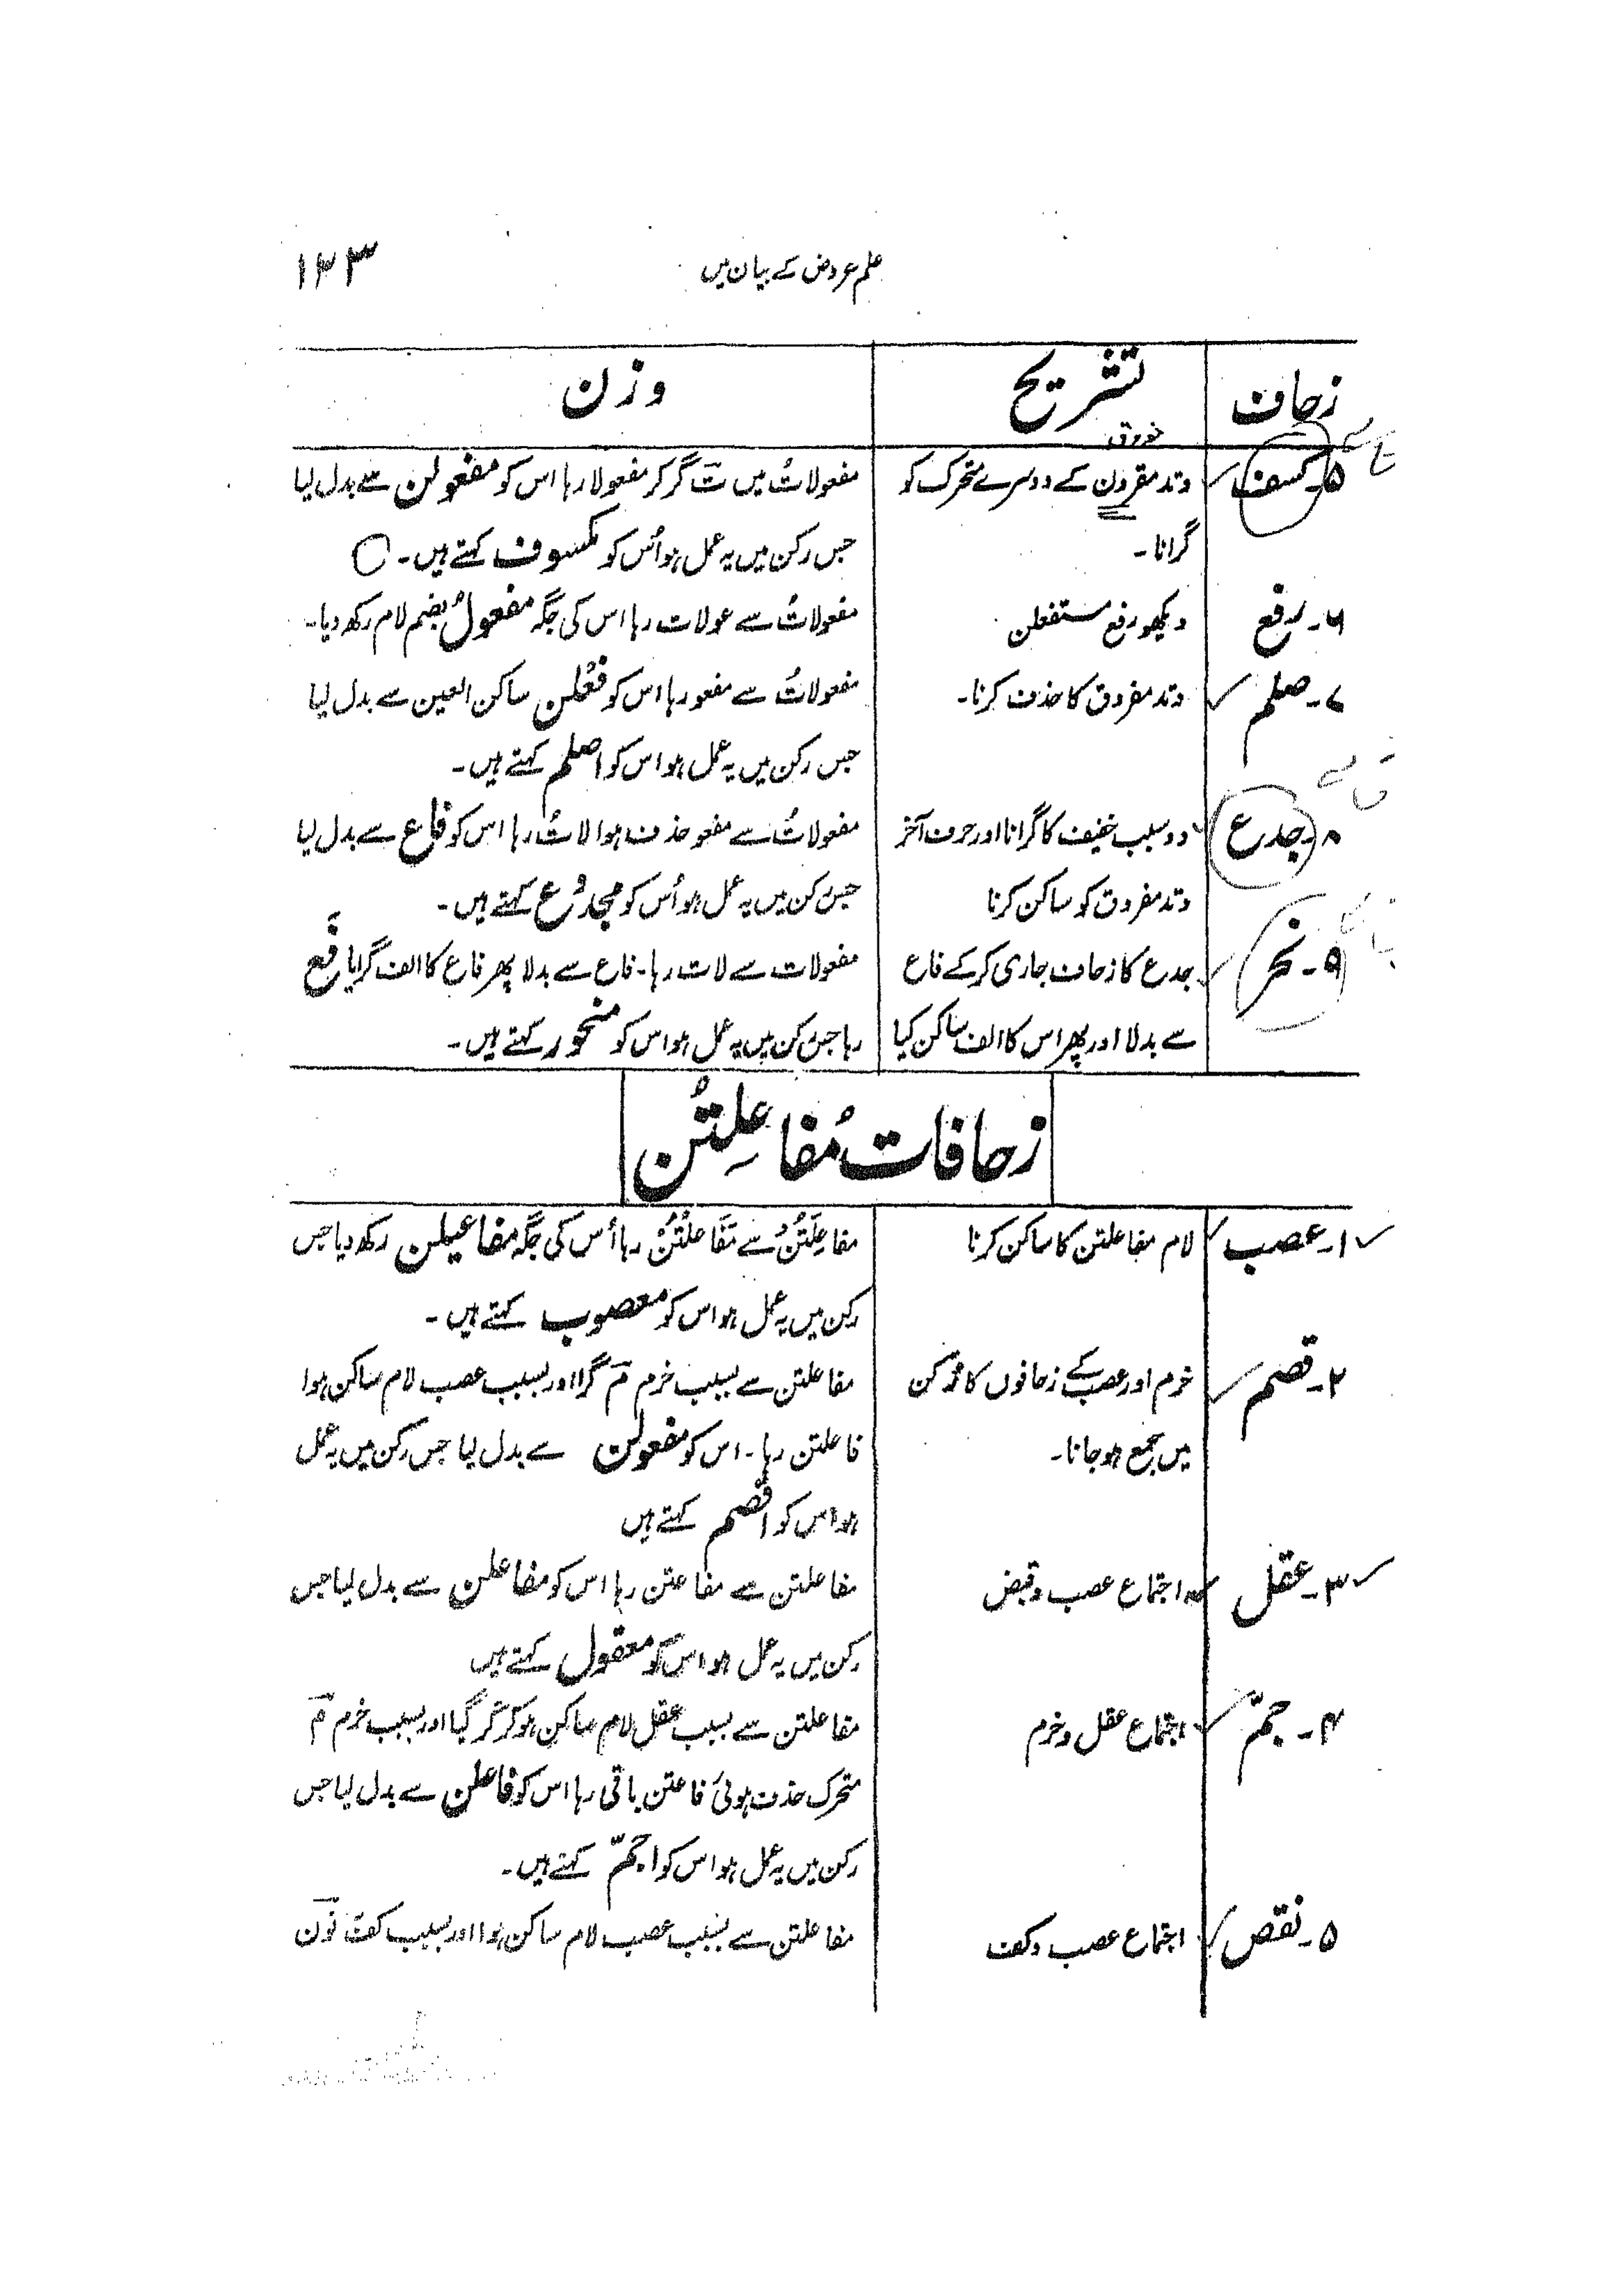 علم عروض کے بیان میں ۱۳۳
زحاف تشریح وزن
۵۔ کسف وتد مقرون کے دوسرے متحرک کو مفعولاتُ میں تَ گر کر مفعولا رہا اس کو مفعولن سے بدل لیا
گرانا۔ جس رکن میں یہ عمل ہو اُس کو مکسوف کہتے ہیں۔
۶۔ رفع دیکھو رفع مستفعلن مفعولاتُ سے عولات رہا اس کی جگہ مفعولُ بضم لام رکھ دیا۔
۷۔ صلم وتد مفروق کا حذف کرنا۔ مفعولاتُ سے مفعو رہا اس کو فعْلن ساکن العین سے بدل لیا
جس رکن میں یہ عمل ہو اس کو اصلم کہتے ہیں۔
۸۔ جدع دو سبب خفیف کا گرانا اور حرف آخر مفعولاتُ سے مفعو حذف ہوا لاتُ رہا اس کو فاع سے بدل لیا
وتد مفروق کو ساکن کرنا جس رکن میں یہ عمل ہو اُس کو مجدوع کہتے ہیں۔
۹۔ نحر جدع کا زحاف جاری کر کے فاع مفعولات سے لات رہا۔ فاع سے بدلا پھر فاع کا الف گرایا فَع
سے بدلا اور پھر اس کا الف ساکن کیا رہا جس رکن میں یہ عمل ہو اس کو منحور کہتے ہیں۔
زحافات مُفاعِلتُن
۱۔ عصب لام مفاعلتن کا ساکن کرنا مفاعِلَتُنْ سے مَفَاعلْتُنْ رہا اُس کی جگہ مفاعیلن رکھ دیا جس
رکن میں یہ عمل ہو اس کو معصوب کہتے ہیں۔
۲۔ قصم خرم اور عصب کے زحافوں کا رکن مفاعلتن سے بسبب خرم مَ گرا اور بسبب عصب لام ساکن ہوا
میں جمع ہو جانا۔ فاعلتن رہا۔ اس کو مفعولن سے بدل لیا جس رکن میں یہ عمل
ہو اس کو اقصم کہتے ہیں
۳۔ عقل اجتماع عصب و قبض مفاعلتن سے مفاعتن رہا اس کو مفاعلن سے بدل لیا جس
رکن میں یہ عمل ہو اس کو معقول کہتے ہیں
۴۔ جمّ اجتماع عقل و خرم مفاعلتن سے بسبب عقل لام ساکن ہو کر گر گیا اور بسبب خرم مَ
متحرک حذف ہوئی فاعتن باقی رہا اس کو فاعلن سے بدل لیا جس
رکن میں یہ عمل ہو اس کو اجمّ کہتے ہیں۔
۵۔ نقص اجتماع عصب و کف مفاعلتن سے بسبب عصب لام ساکن ہوا اور بسبب کف نون